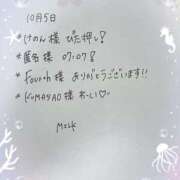 10月5日
*けのん様 ぴた押し!
*匿名様 07:07!
*fourth様 ありがとうございます!!
*KUMASAO様 おーしい♡
Milk